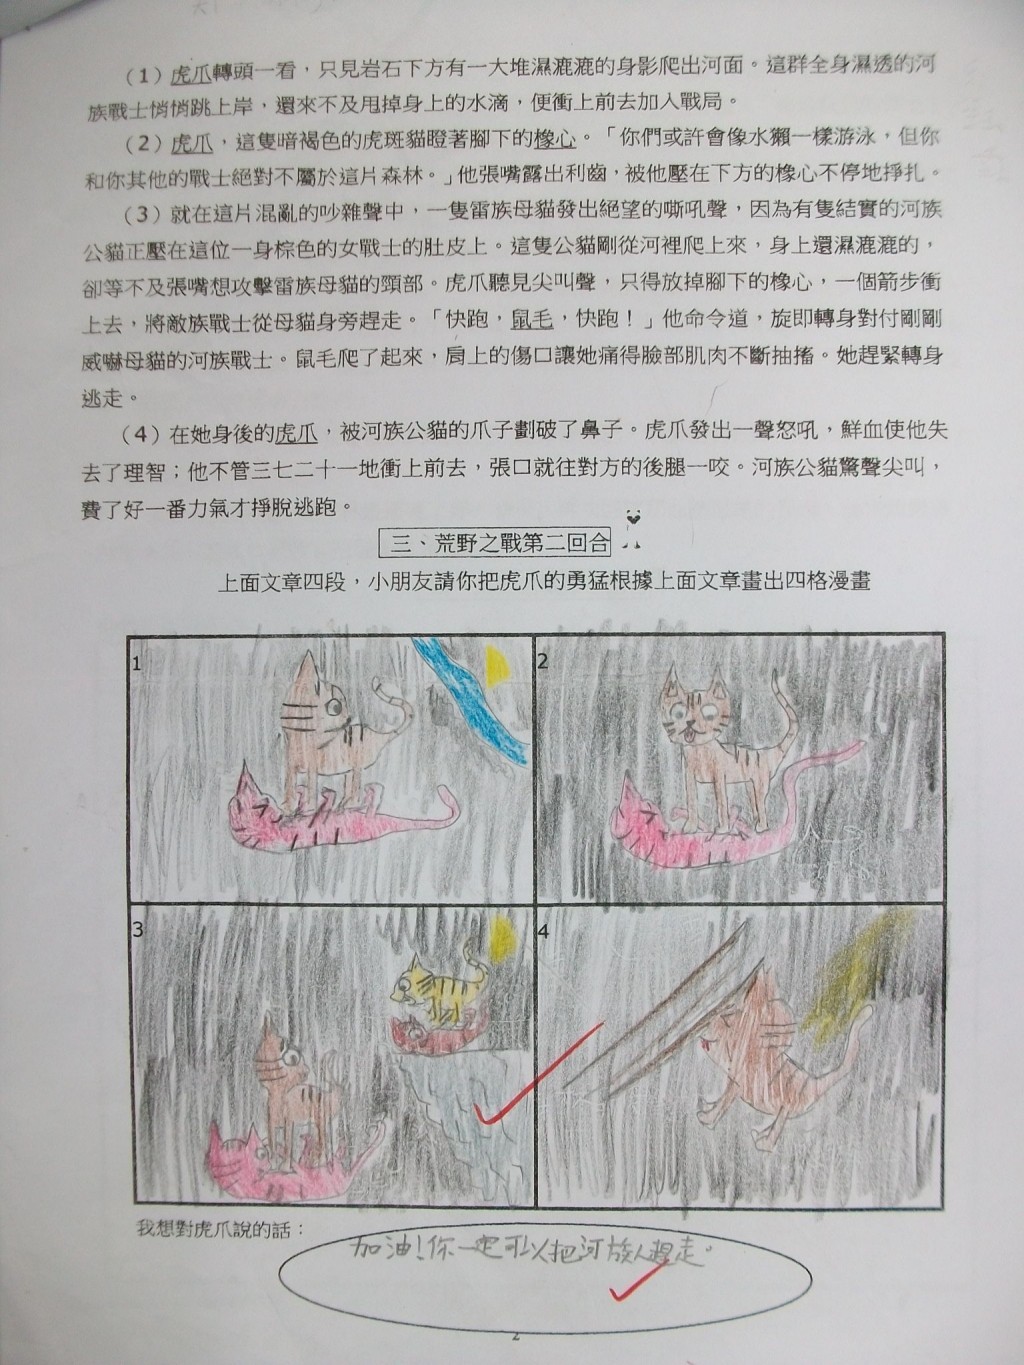 （1）虎爪轉頭一看，只見岩石下方有一大堆濕漉漉的身影爬出河面。這群全身濕透的河
族戰士悄悄跳上岸，還來不及甩掉身上的水滴，便衝上前去加入戰局。
（2）虎爪，這隻暗褐色的虎斑貓瞪著腳下的橡心。「你們或許會像水獺一樣游泳，但你
和你其他的戰士絕對不屬於這片森林。」他張嘴露出利齒，被他壓在下方的橡心不停地掙扎。
（3）就在這片混亂的吵雜聲中，一隻雷族母貓發出絕望的嘶吼聲，因為有隻結實的河族
公貓正壓在這位一身棕色的女戰士的肚皮上。這隻公貓剛從河裡爬上來，身上還濕漉漉的，
卻等不及張嘴想攻擊雷族母貓的頸部。虎爪聽見尖叫聲，只得放掉腳下的橡心，一個箭步衝
上去，將敵族戰士從母貓身旁趕走。「快跑，鼠毛，快跑！」他命令道，旋即轉身對付剛剛
威嚇母貓的河族戰士。鼠毛爬了起來，肩上的傷口讓她痛得臉部肌肉不斷抽搐。她趕緊轉身
逃走。
（4）在她身後的虎爪，被河族公貓的爪子劃破了鼻子。虎爪發出一聲怒吼，鮮血使他失
去了理智；他不管三七二十一地衝上前去，張口就往對方的後腿一咬。河族公貓驚聲尖叫，
費了好一番力氣才掙脫逃跑。
三、荒野之戰第二回合
上面文章四段，小朋友請你把虎爪的勇猛根據上面文章畫出四格漫畫
1
2
3
4
我想對虎爪說的話：
加油！你一定可以把河族人趕走。
2